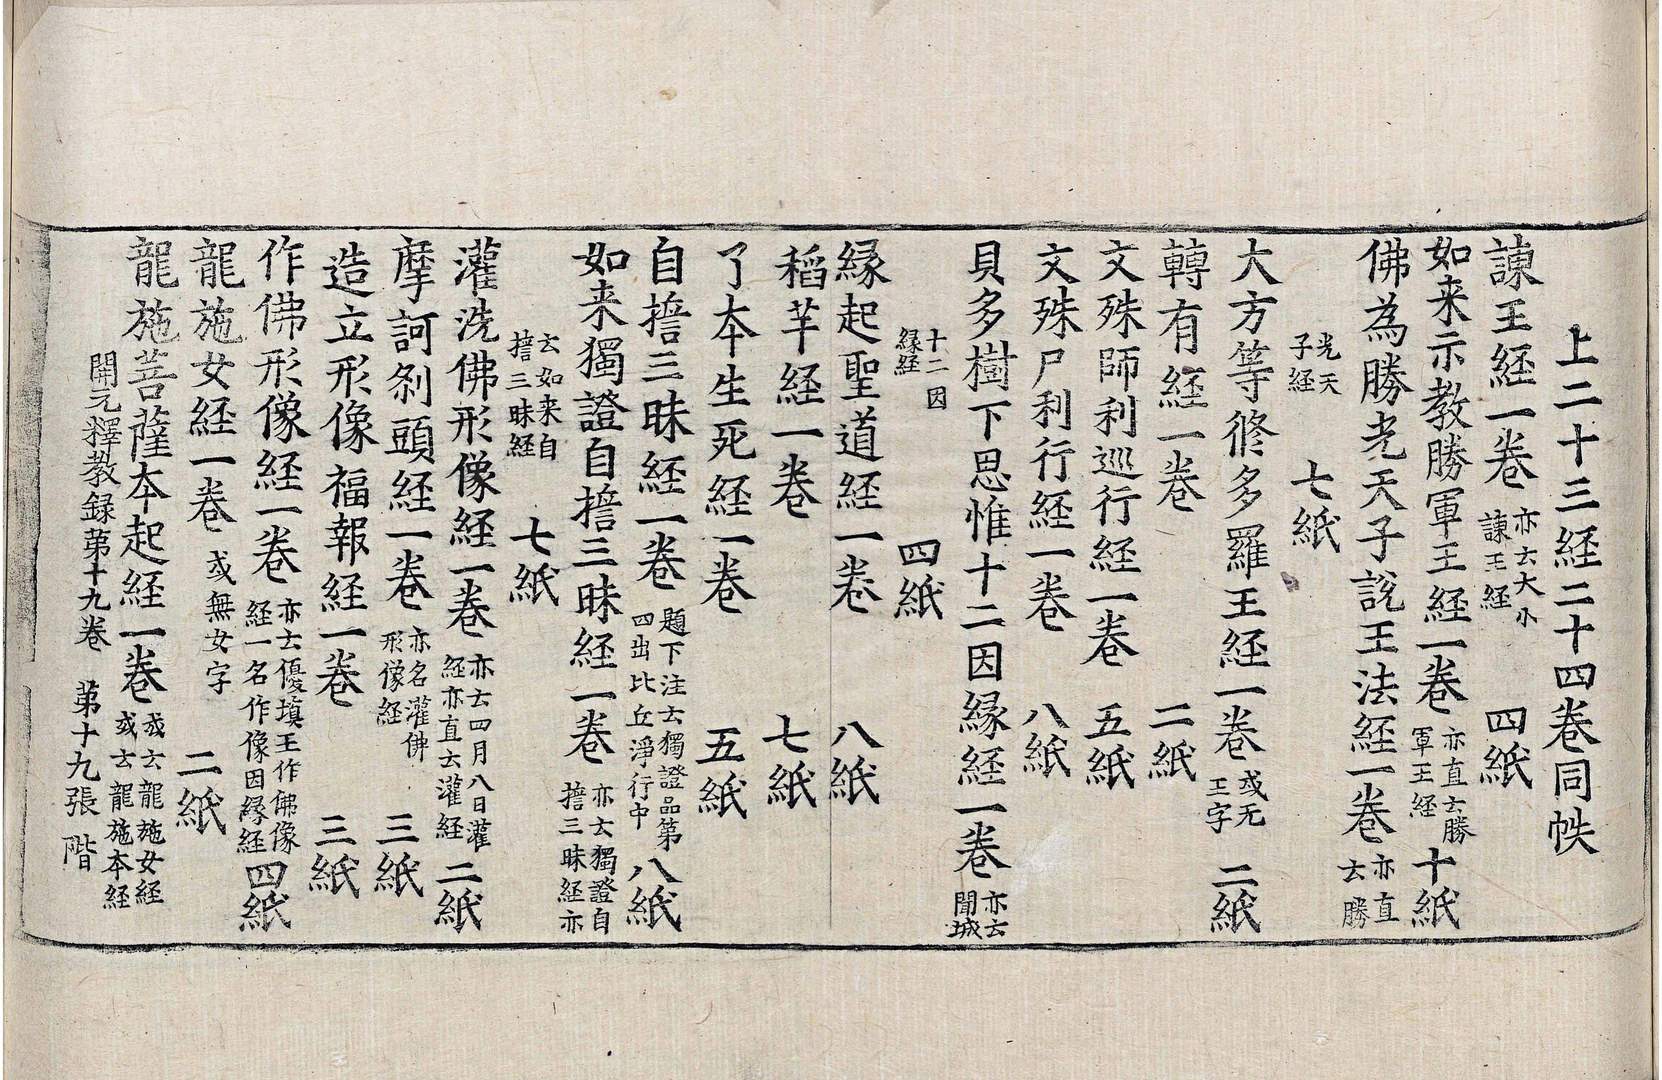 上二十三経二十四卷同帙
諫王経一卷 亦云大小諫王経 四紙
如来示教勝軍王経一卷 亦直云勝軍王経 十紙
佛為勝光天子說王法経一卷 亦直云勝
光天子経 七紙
大方等修多羅王経一卷 或无王字 二紙
轉有経一卷 二紙
文殊師利巡行経一卷 五紙
文殊尸利行経一卷 八紙
貝多樹下思惟十二因縁経一卷 亦云聞城
十二因縁経 四紙
縁起聖道経一卷 八紙
稻芉経一卷 七紙
了本生死経一卷 五紙
自擔三昧経一卷 題下注云獨證品第四出比丘淨行中 八紙
如来獨證自擔三昧経一卷 亦云獨證自擔三昧経亦
云如来自擔三昧経 七紙
灌洗佛形像経一卷 亦云四月八日灌経亦直云灌経 二紙
摩訶剎頭経一卷 亦名灌佛形像経 三紙
造立形像福報経一卷 三紙
作佛形像経一卷 亦云優填王作佛像経一名作像因縁経 四紙
龍施女経一卷 或無女字 二紙
龍施菩薩本起経一卷 或云龍施女経或云龍施本経
開元釋教録第十九卷 第十九張 階